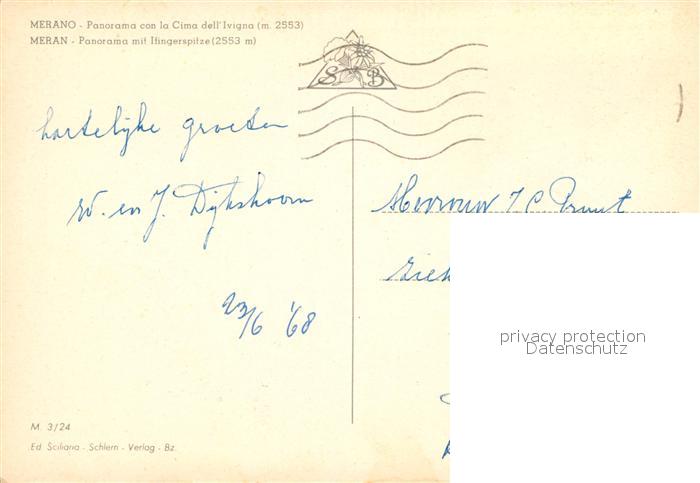 MERANO - Panorama con la Cima dell'Ivigna (m. 2553)
MERAN - Panorama mit Ifingerspitze (2553 m)
S B
hartelijke groeten
W. en J. Dijkshoorn
23/6 '68
Mevrouw J C
privacy protection
Datenschutz
M. 3/24
Ed. Sciliaria - Schlern - Verlag - Bz.